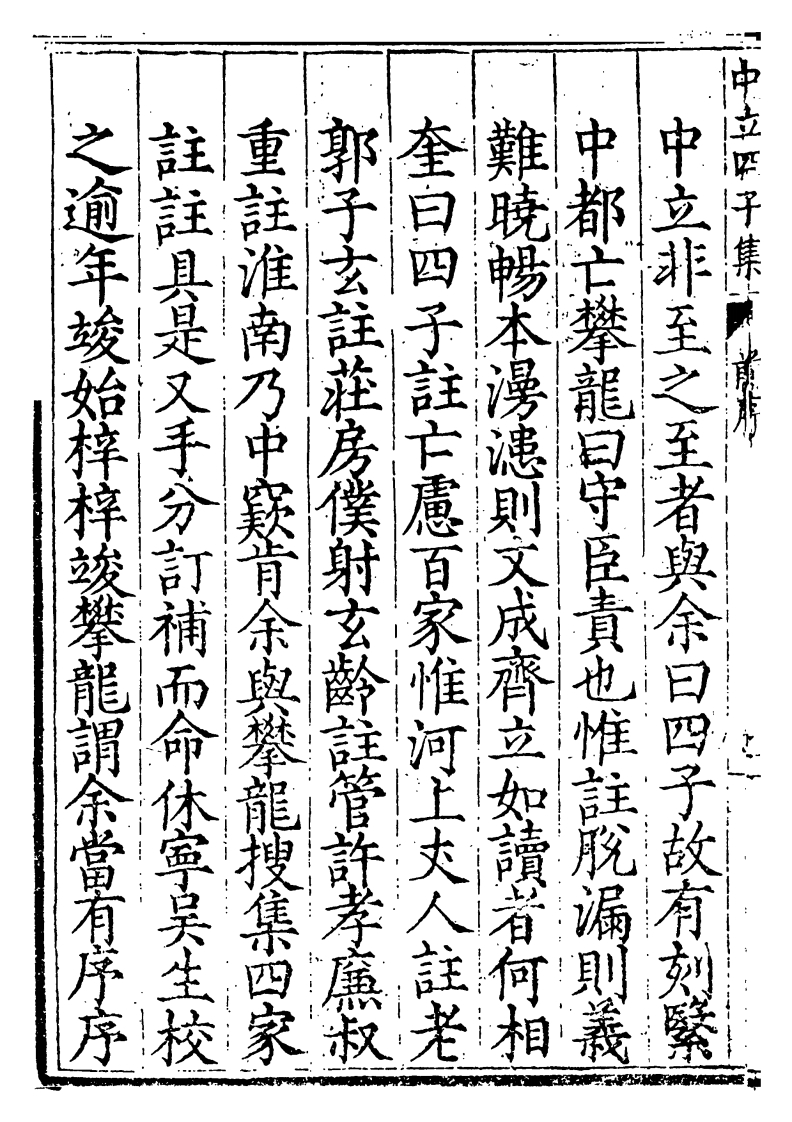 中立四子集
中立非至之至者與余曰四子故有刻繄
中都亡攀龍曰守臣責也惟註脫漏則義
難曉暢本漫漶則文成齊立如讀者何相
奎曰四子註亡慮百家惟河上丈人註老
郭子玄註莊房僕射玄齡註管許孝廉叔
重註淮南乃中窾肯余與攀龍搜集四家
註註具是又手分訂補而命休寧吳生校
之逾年竣始梓梓竣攀龍謂余當有序序